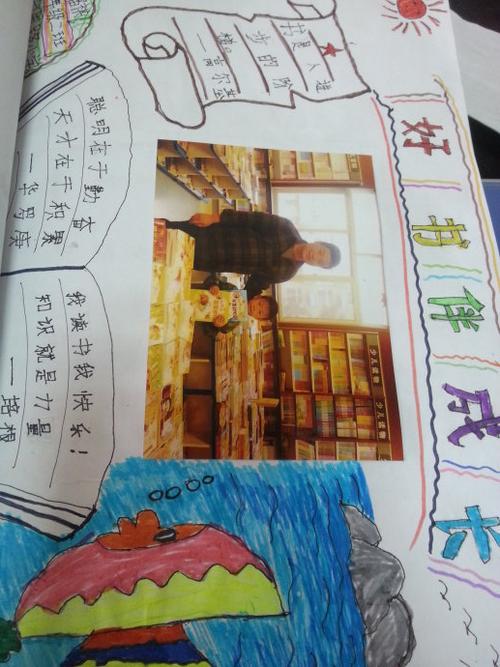 好书伴成长
书是人进
步的阶
梯——高尔基
聪明在于勤奋
天才在于积累
——华罗庚
我读书我快乐！
知识就是力量
——培根
少儿读物
少儿读物